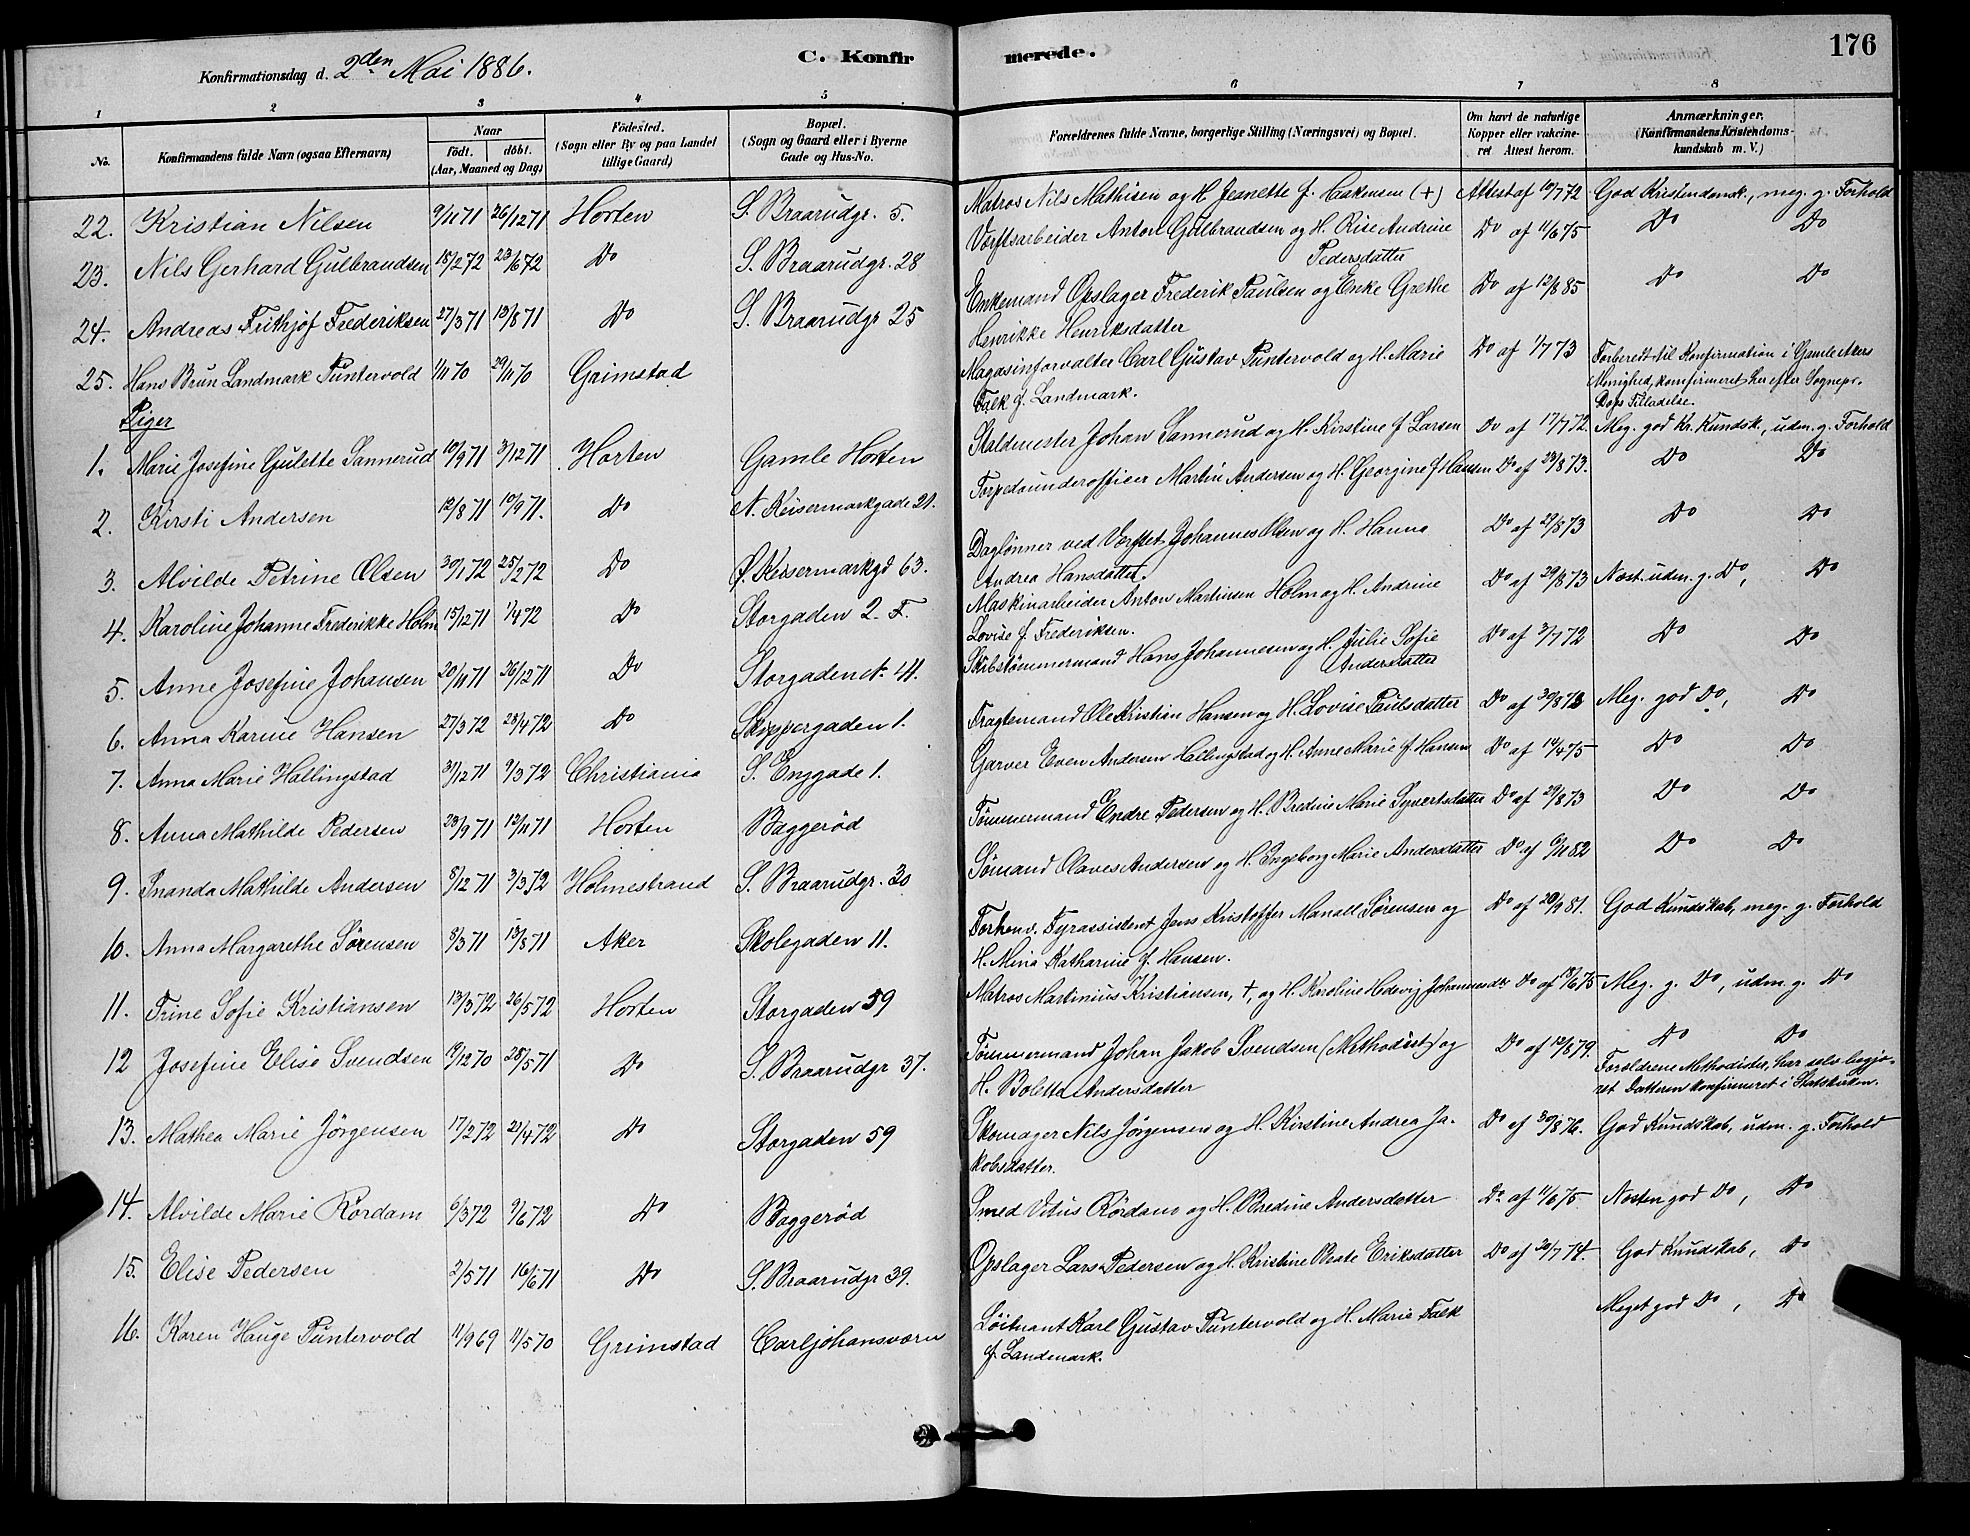 Konfirmationsdag d. 2den Mai 1886.
C. Konfirmerede.
176
1 2 3 4 5 6 7 8
No.
Konfirmandens fulde Navn (ogsaa Efternavn)
Naar
født. døbt.
(Aar, Maaned og Dag)
Födested.
(Sogn eller By og paa Landet
tillige Gaard)
Bopæl.
(Sogn og Gaard eller i Byerne
Gade og Hus-No.
Forældrenes fulde Navne, borgerlige Stilling (Næringsvei) og Bopæl.
Om havt de naturlige
Kopper eller vakcine-
ret Attest herom.
Anmærkninger.
(Konfirmandens Kristendoms-
kundskab m. V.)
22. Kristian Nilsen 9/11 71 26/12 71 Horten S. Braarudgr. 5. Matros Nils Mathisen og H. Jeanette f. Isaksen (+) Attest af 10/7 72 God Kristendomsk., meg. g. Forhold
23. Nils Gerhard Gulbrandsen 18/2 72 23/6 72 Do S. Braarudgr. 28 Værftsarbeider Anton Gulbrandsen og H. Rise Andrine Do af 11/6 75 Do Do
Pedersdatter
24. Andreas Frithjof Frederiksen 27/3 71 13/8 71 Do S. Braarudgr 25 Enkemand Opslager Frederik Paulsen og Enke Grethe Do af 12/8 85 Do Do
Henrikke Henriksdatter
25. Hans Brun Landmark Puntervold 1/11 70 29/11 70 Grimstad Magasinforvalter Carl Gustav Puntervold og H. Marie Do af 1/7 73 Forberedt til Konfirmation i Gamle Akers
Falk f. Landmark. Menighed, konfirmeret her efter Sognepr.
Tilladelse.
Piger
1. Marie Josefine Gulette Sannerud 10/9 71 3/12 71 Horten Gamle Horten Staldmester Johan Sannerud og H. Kirstine f. Larsen Do af 17/7 72. Meg. god Kr. Kundsk., udm. g. Forhold
2. Kirsti Andersen 12/8 71 10/9 71. Do N. Keisermarkgade 21. Torpedounderofficer Martin Andersen og H. Georgine f. Hansen Do af 23/8 73. Do Do
3. Alvilde Petrine Olsen 30/1 72 25/2 72 Do Ø. Keisermarkgd 63. Daglønner ved Værftet Johannes Olsen og H. Hanna Do af 27/8 73 Do Do
Andrea Hansdatter.
4. Karoline Johanne Frederikke Holm 15/12 71 1/4 72 Do Storgaden 2. F. Maskinarbeider Anton Martinsen Holm og H. Andrine Do af 29/8 73 Næst. udm. g. Do, Do
Lovise f. Frederiksen.
5. Anne Josefine Johansen 20/11 71 26/12 71 Do Storgaden No 41. Skibstømmermand Hans Johannesen og H. Julie Sofie Do af 3/7 72 Do Do
Andersdatter
6. Anna Karine Hansen 27/3 72 28/4 72 Do Skippergaden 1. Fragtemand Ole Kristian Hansen og H. Lovise Paulsdatter Do af 30/8 73 Meg. god Do, Do
7. Anna Marie Hallingstad 31/12 71 9/3 72 Christiania S. Enggade 1. Garver Even Andersen Hallingstad og H. Anne Marie f. Hansen Do af 14/4 75 Do Do
8. Anna Mathilde Pedersen 23/9 71 12/11 71 Horten Baggerød Tømmermand Endre Pedersen og H. Bredine Marie Syvertsdatter Do af 29/8 73 Do Do
9. Inanda Mathilde Andersen 8/12 71 3/3 72 Holmestrand S. Braarudgr. 30 Sømand Olaves Andersen og H. Engeborg Marie Andersdatter Do af 6/11 82 Do Do
10. Anna Margarethe Sørensen 8/3 71 13/8 71 Aker Skolegaden 11. Forhenv. Fyrassistent Jens Kristoffer Monall Sørensen og Do af 20/9 81. God Kundskab, meg. g. Forhold
H. Mina Katharine f. Hansen.
11. Trine Sofie Kristiansen 13/3 72 26/5 72 Horten Storgaden 59 Matros Martinius Kristiansen, +, og H. Karoline Hedevig Johannesdr. Do af 11/6 75 Meg. g. Do, udm. g. Do
12 Josefine Elise Svendsen 19/12 70 28/5 71 Do S. Braarudgr 37. Tømmermand Johan Jakob Svendsen (Methodist) og Do af 12/8 79. Do Do
H. Boletta Andersdatter Forældrene Methodister, har selv begjæ-
ret Datteren konfirmeret i Statskirken.
13. Mathea Marie Jørgensen 17/2 72 21/4 72 Do Storgaden 59 Skomager Nils Jørgensen og H. Kirstine Andrea Ja- Do af 30/8 76. God Kundskab, udm. g. Forhold
kobsdatter.
14. Alvilde Marie Rørdam 6/3 72 9/6 72 Do Baggerød Smed Vitus Rørdam og H. Bredine Andersdatter Do af 11/6 75 Næsten god Do, Do
15. Elise Pedersen 2/5 71 16/6 71 Do S. Braarudgr 39. Opslager Lars Pedersen og H. Kristine Beate Eriksdatter Do af 30/7 74. God Kundskab, Do
16. Karen Hauge Puntervold 11/9 69 11/5 70 Grimstad Carljohansværn Løitnant Karl Gustav Puntervold og H. Marie Falk Meget god Do, Do
f. Landmark.